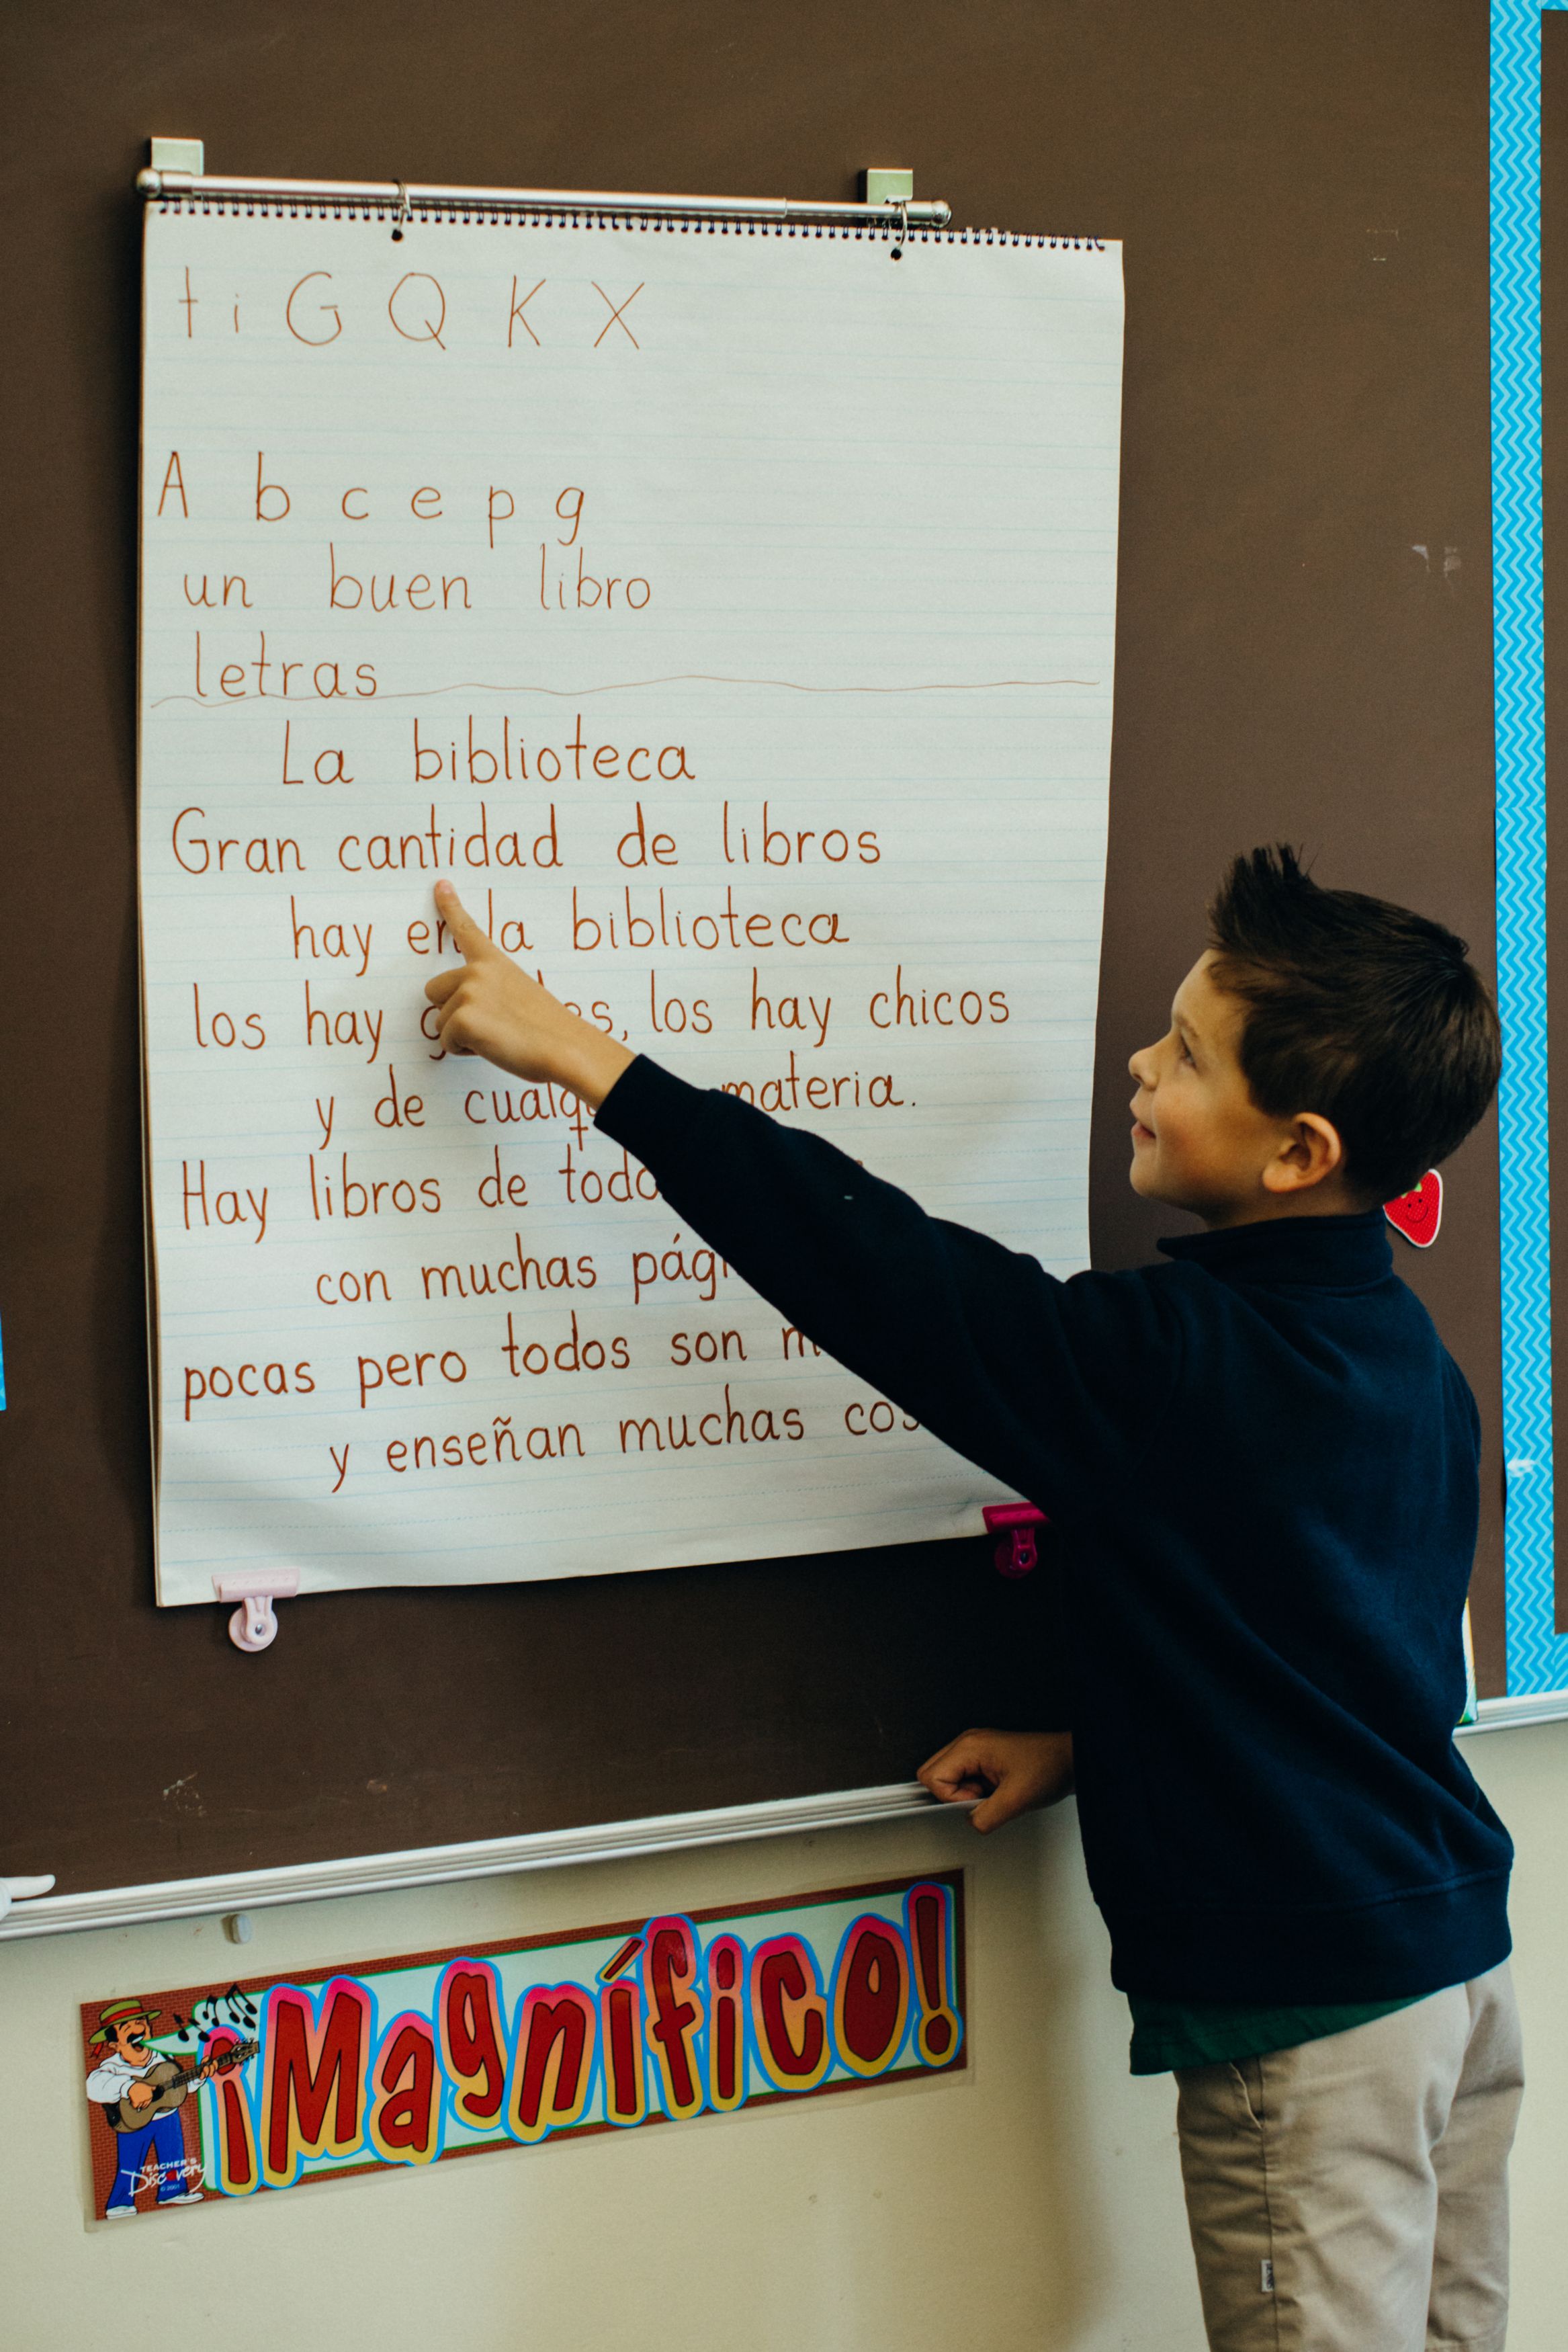 t i G Q K X
A b c e p g
un buen libro
letras
La biblioteca
Gran cantidad de libros
hay en la biblioteca
los hay los hay chicos
y de materia.
Hay libros de
con muchas
pocas pero todos son
y enseñan muchas
¡Magnífico!
TEACHER'S
Discovery
© 2001